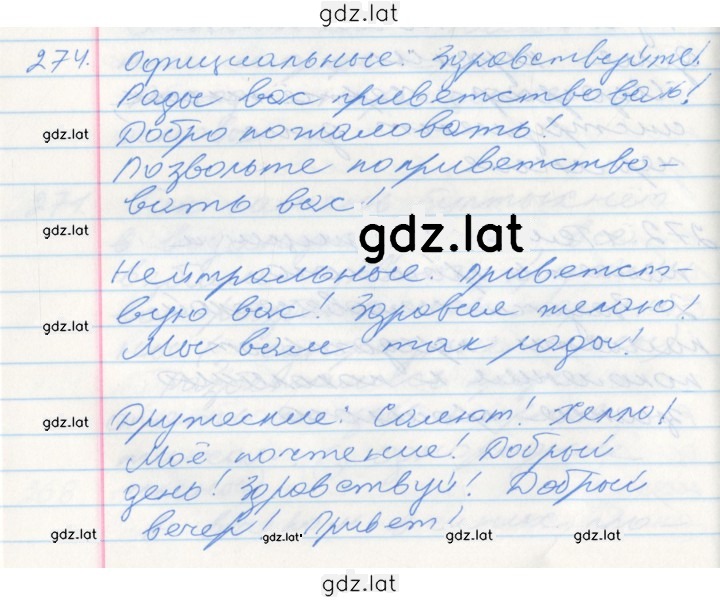 gdz.lat
274. Официальные: Здравствуйте!
Рады вас приветствовать!
gdz.lat Добро пожаловать!
Позвольте поприветство-
gdz.lat вать вас!
gdz.lat
Нейтральные. Приветст-
gdz.lat вую вас! Здравия желаю!
Мы вам так рады!
gdz.lat Дружеские: Салют! Хелло!
Моё почтение! Добрый
день! Здравствуй! Добрый
вечер! Привет!
gdz.lat gdz.lat gdz.lat gdz.lat
gdz.lat